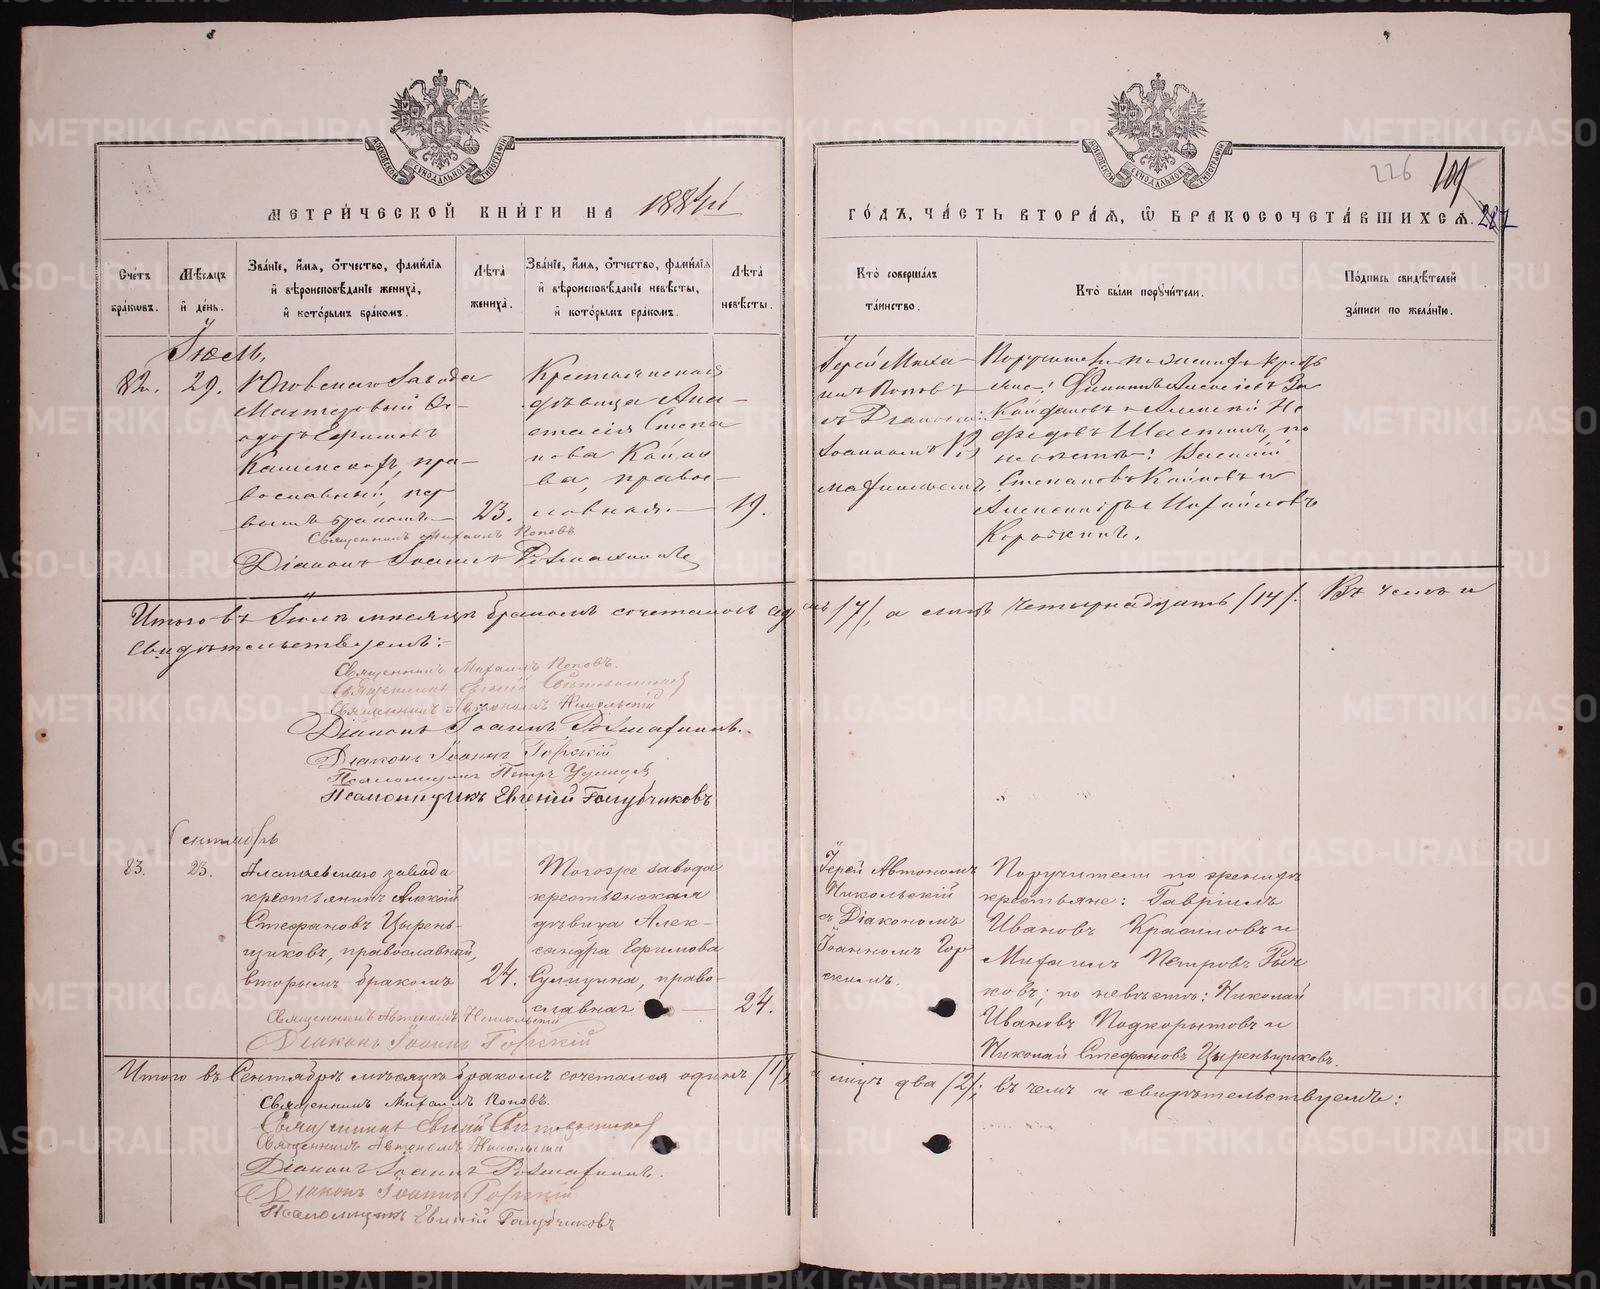 МЕТРИ́ЧЕСКОЙ КНИ́ГИ НА 1884й
ГО́ДЪ, ЧА́СТЬ ВТОРА́Я, Ѿ БРАКОСОЧЕТА́ВШИХСЯ.
226 109 287
Сче́тъ бра́кωвъ.
Мѣ́сяцъ и҆ де́нь.
Зва́нїе, и҆́мя, ѻ҆́тчество, фами́лїя и҆ вѣроисповѣ́данїе жениха̀, и҆ кото́рымъ бра́комъ.
Лѣ́та жениха̀.
Зва́нїе, и҆́мя, ѻ҆́тчество, фами́лїя и҆ вѣроисповѣ́данїе невѣ́сты, и҆ кото́рымъ бра́комъ.
Лѣ́та невѣ́сты.
Кто̀ соверша́лъ та́инство.
Кто̀ бы́ли поручи́тели.
По́дпись свидѣ́телей за́писи по жела́нїю.
Іюль,
82. 29.
Юговскаго завода
Мастеровый Ѳе-
одоръ Ефимовъ
Каменскохъ, пра-
вославный, пер
вымъ бракомъ — 23.
Крестьянская
дѣвица Ана-
стасія Степа
нова
ва, правос-
лавная. — 19.
Іерей Миха-
илъ Поповъ
съ Діакономъ
Іоанномъ
Поручители по женихѣ крест
яне: Филиппъ Алексіевъ
и Алексѣй
по
невѣстѣ: Василій
Степановъ и
Александръ Михайловъ
Священникъ Михаилъ Поповъ
Діаконъ Іоаннъ
Итого въ Іюлѣ мѣсяцѣ бракомъ сочеталось седмь /7/, а лицъ четырнадцать /14/. Въ чемъ и
свидѣтельствуемъ:-
Священникъ Михаилъ Поповъ.
Священникъ Евгеній
Священникъ Автономъ Никольскій
Діаконъ Іоаннъ
Діаконъ Іоаннъ Горскій
Псаломщикъ Петръ
Псаломщикъ Евгеній Голубчиковъ
Сентябрь
83. 23.
Алапаевскаго завода
крестьянинъ Алексій
Стефановъ Цырень-
щиковъ, православный,
вторымъ бракомъ 24.
Тогоже завода
крестьянская
дѣвица Алек-
сандра Ефимова
Сумищна, право-
славная — 24.
Іерей Автономъ
Никольскій
съ Діакономъ
Іоанномъ Гор
скимъ.
Поручители по женихѣ
крестьяне: Гавріилъ
Ивановъ Красиловъ и
Михаилъ Петровъ Рыч
ковъ; по невѣстѣ: Николай
Ивановъ Подкорытовъ и
Николай Стефановъ Цыренщиковъ.
Священникъ Автономъ Никольскій
Діаконъ Іоаннъ Горскій
Итого въ Сентябрѣ мѣсяцѣ бракомъ сочетался одинъ /1/, лицъ два /2/; въ чемъ и свидѣтельствуемъ:
Священникъ Михаилъ Поповъ.
Священникъ Евгеній
Священникъ Автономъ Никольскій
Діаконъ Іоаннъ
Діаконъ Іоаннъ Горскій
Псаломщикъ Евгеній Голубчиковъ
METRIKI.GASO-URAL.RU